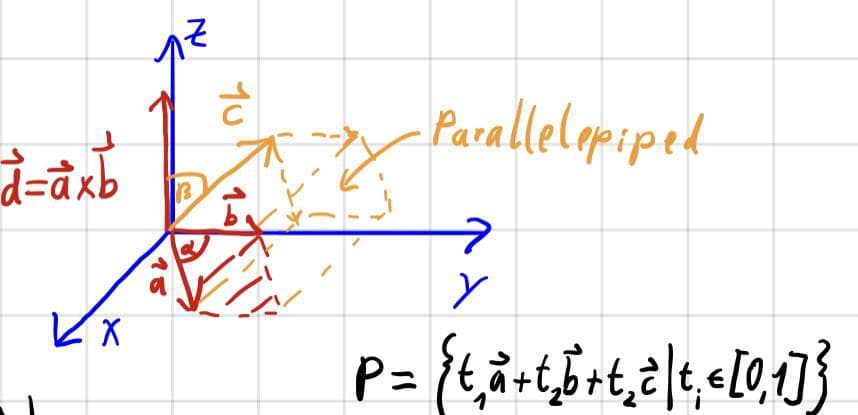 z
c⃗
Parallelepiped
d⃗=a⃗×b⃗
β
b⃗
α
a⃗
x
y
P = {t₁a⃗+t₂b⃗+t₂c⃗|tᵢ∈[0,1]}